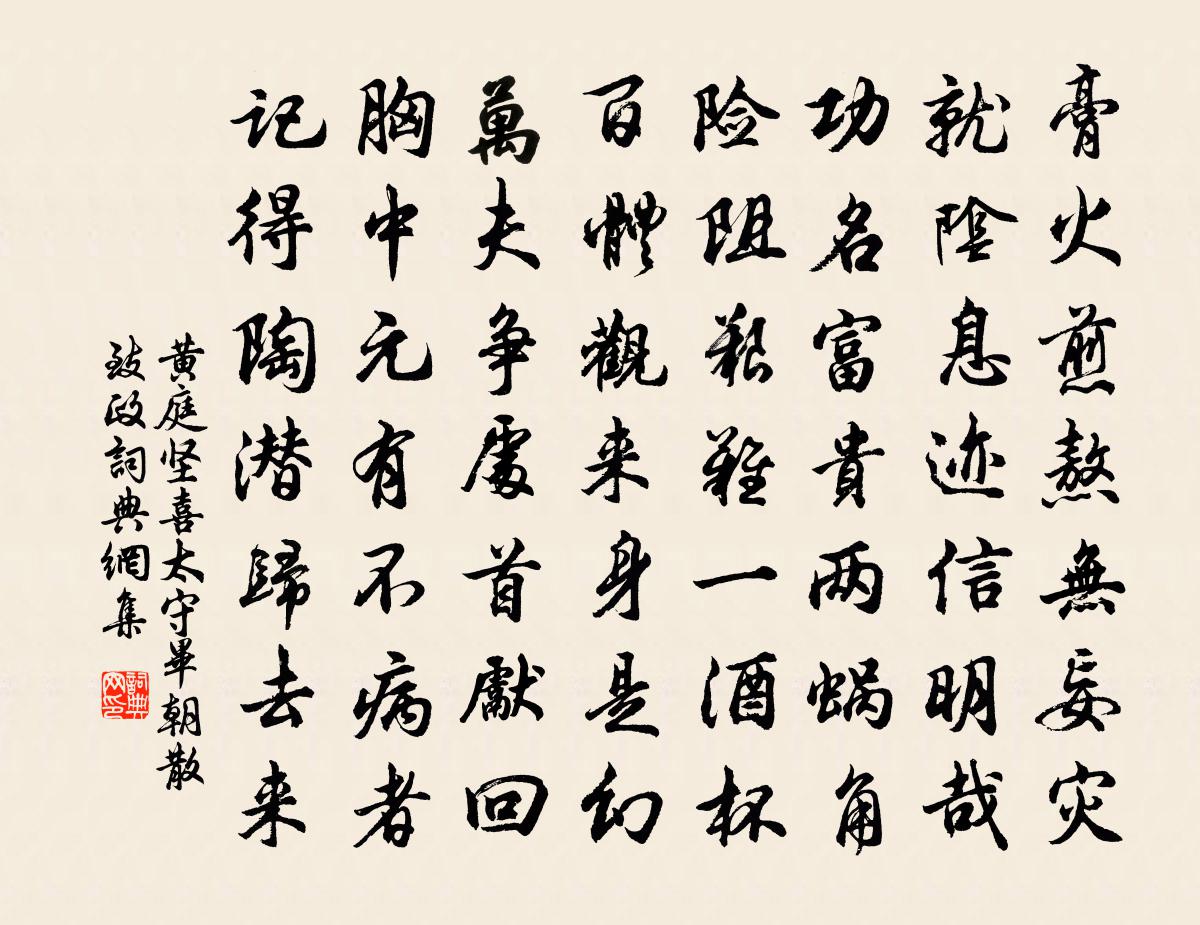 膏火煎熬無妄灾
就陰息迹信明哉
功名富貴两蜗角
险阻艱難一酒杯
百體觀来身是幻
萬夫争處首獻回
胸中元有不病者
记得陶潜歸去来
黄庭坚喜太守畢朝散
致政詞典網集
詞典网印